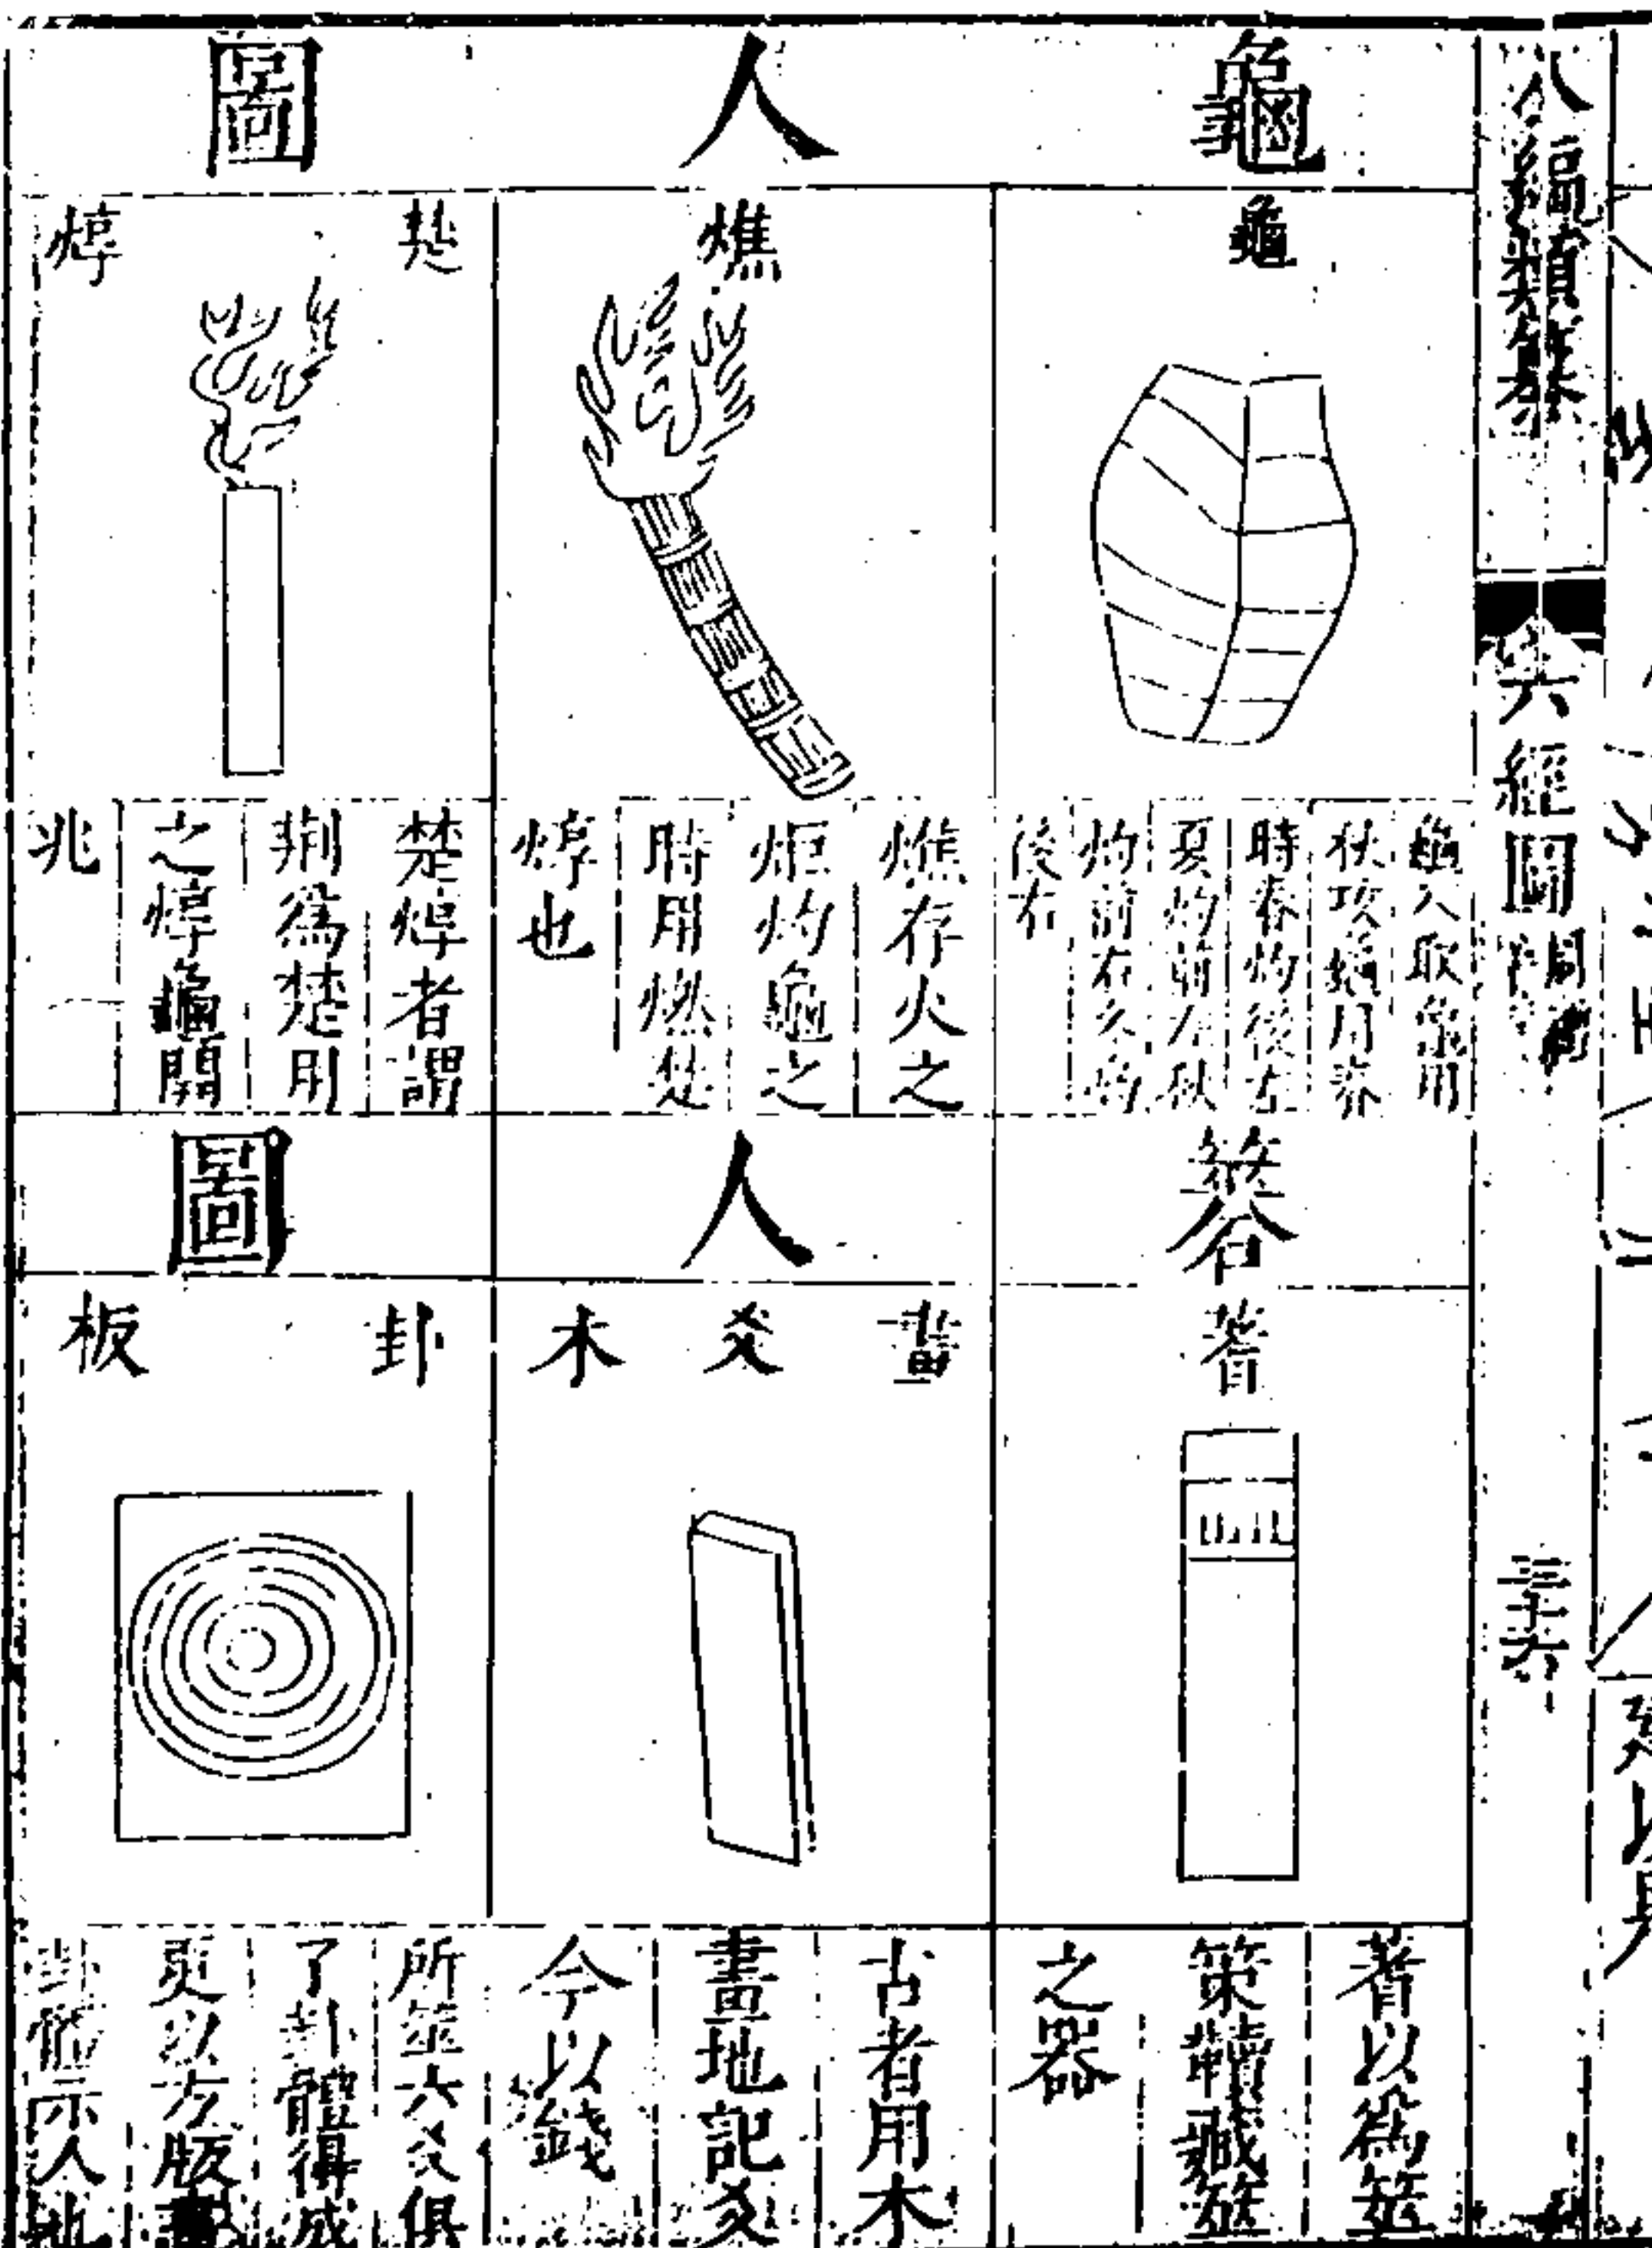 八編類纂
六經圖
三十六
龜人圖
龜
龜人取龜用
秋攻龜用春
時春灼後左
夏灼前左秋
灼前右冬灼
後右
燋
燋存火之
炬灼龜之
時用燃楚
焞也
楚焞
楚焞者謂
荊爲楚用
之焞龜開
兆
簭人圖
蓍
蓍以爲筮
策韇藏筮
之器
畫爻木
古者用木
畫地記爻
今以錢
卦板
所筮六爻俱
了卦體得成
更以方版畫
卦體示人